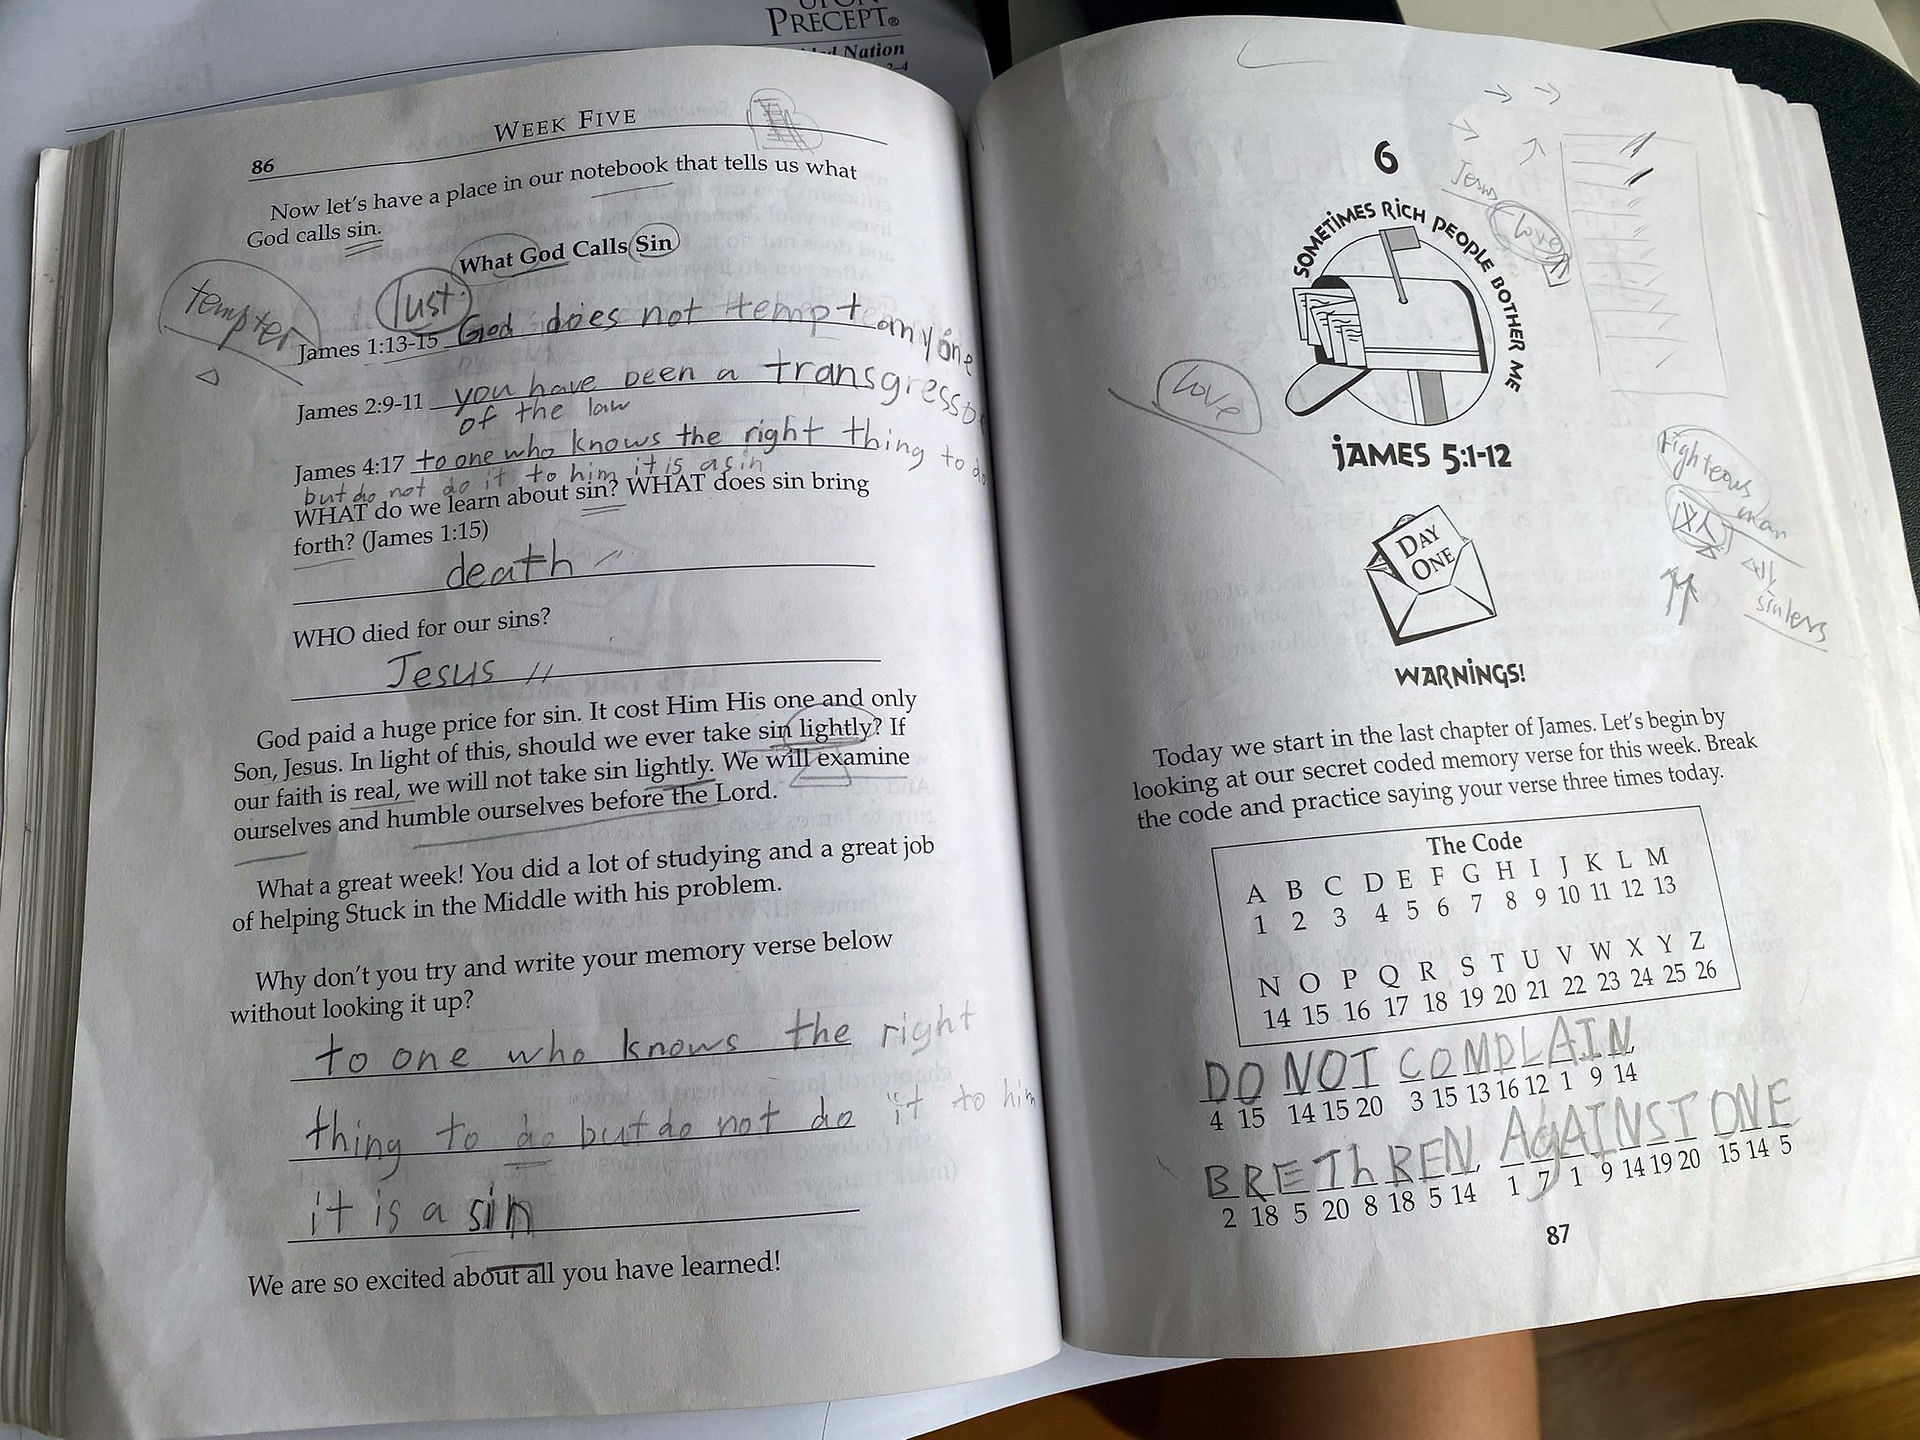 UPON
PRECEPT®
Nation
2–4
WEEK FIVE
86
Now let's have a place in our notebook that tells us what
God calls sin.
What God Calls Sin
tempter
lust
James 1:13-15 God does not tempt anyone
James 2:9-11 you have been a transgressor
of the law
James 4:17 to one who knows the right thing to do
but do not do it to him it is a sin
WHAT do we learn about sin? WHAT does sin bring
forth? (James 1:15)
death
WHO died for our sins?
Jesus
God paid a huge price for sin. It cost Him His one and only
Son, Jesus. In light of this, should we ever take sin lightly? If
our faith is real, we will not take sin lightly. We will examine
ourselves and humble ourselves before the Lord.
What a great week! You did a lot of studying and a great job
of helping Stuck in the Middle with his problem.
Why don't you try and write your memory verse below
without looking it up?
to one who knows the right
thing to do but do not do it to him
it is a sin
We are so excited about all you have learned!
6
Jesus
love
SOMETIMES RICH PEOPLE BOTHER ME
love
JAMES 5:1-12
righteous
man
sinless
DAY
ONE
WARNINGS!
Today we start in the last chapter of James. Let's begin by
looking at our secret coded memory verse for this week. Break
the code and practice saying your verse three times today.
The Code
A B C D E F G H I J K L M
1 2 3 4 5 6 7 8 9 10 11 12 13
N O P Q R S T U V W X Y Z
14 15 16 17 18 19 20 21 22 23 24 25 26
DO NOT COMPLAIN,
4 15 14 15 20 3 15 13 16 12 1 9 14
BREThREN, AgAINST ONE
2 18 5 20 8 18 5 14 1 7 1 9 14 19 20 15 14 5
87